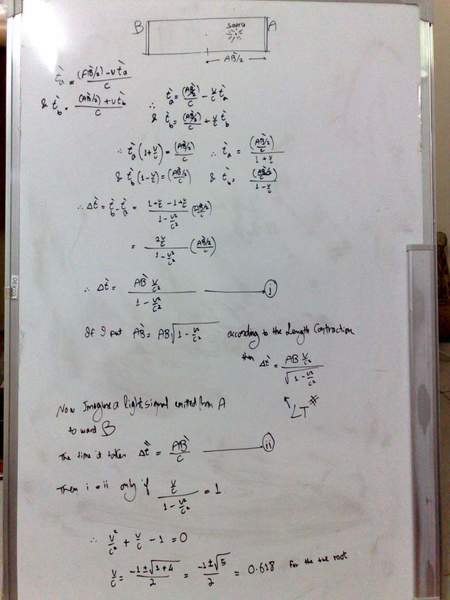 B A
AB̀/2
t̀a = ((AB̀/2) - v t̀a)/C
& t̀b = ((AB̀/2) + v t̀b)/C
∴ t̀a = (AB̀/2)/C - v/c t̀a
& t̀b = (AB̀/2)/C + v/c t̀b
∴ t̀a (1 + v/c) = (AB̀/2)/C ∴ t̀a = ((AB̀/2)/C)/(1 + v/c)
& t̀b (1 - v/c) = (AB̀/2)/C & t̀b = ((AB̀/2)/C)/(1 - v/c)
∴ Δt̀ = t̀b - t̀a = (1 + v/c - 1 + v/c)/(1 - v²/c²) (AB̀/2/C)
= (2v/c)/(1 - v²/c²) (AB̀/2/C)
∴ Δt̀ = (AB̀ v/c²)/(1 - v²/c²) — i
If I put AB̀ = AB√(1 - v²/c²) according to the Length Contraction
then Δt̀ = (AB v/c²)/√(1 - v²/c²)
LT*
Now Imagine a light signal emitted from A
toward B
The time it taken Δt̀ = AB̀/C — ii
Then i = ii only if (v/c)/(1 - v²/c²) = 1
∴ v²/c² + v/c - 1 = 0
v/c = (-1 ± √(1+4))/2 = (-1 ± √5)/2 = 0.618 for the +ve root